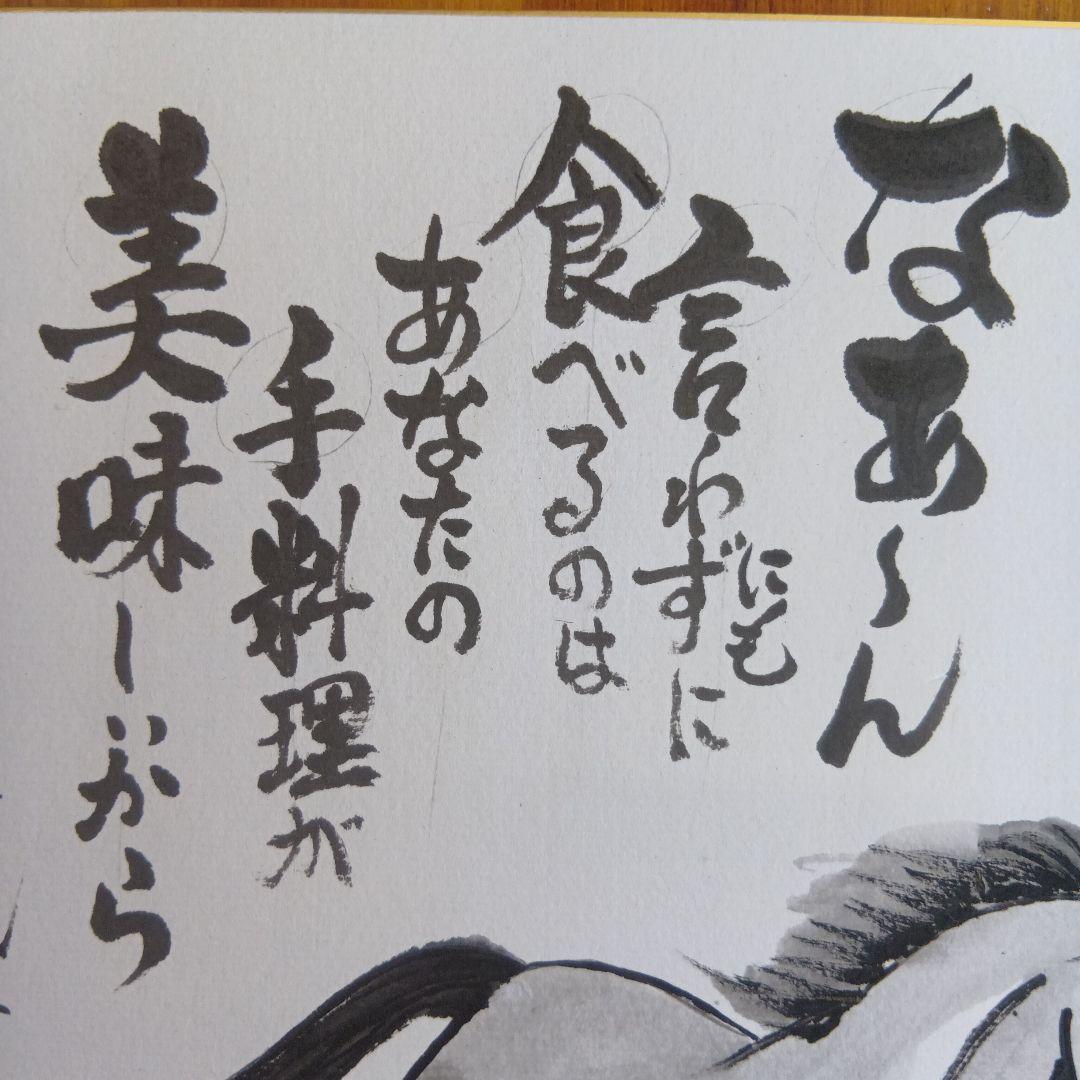 なあ〜ん
にも
言わずに
食べるのは
あなたの
手料理が
美味しいから